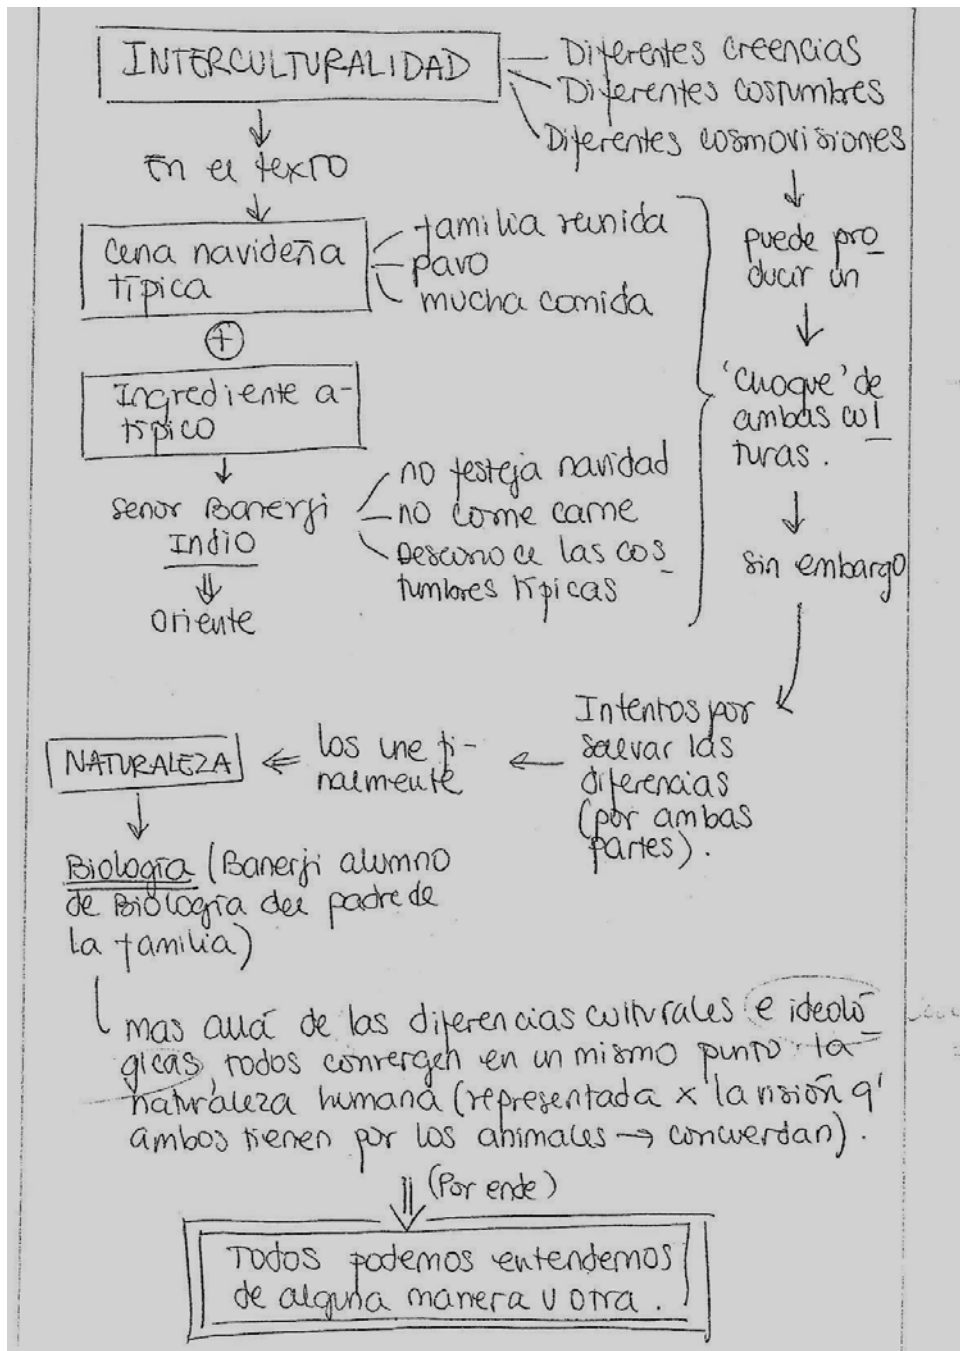 INTERCULTURALIDAD
Diferentes creencias
Diferentes costumbres
Diferentes cosmovisiones
En el texto
Cena navideña
típica
familia reunida
pavo
mucha comida
+
Ingrediente a-
típico
señor Banerji
Indio
Oriente
no festeja navidad
no come carne
Desconoce las cos
tumbres típicas
puede pro
ducir un
'choque' de
ambas cul
turas.
sin embargo
Intentos por
salvar las
diferencias
(por ambas
partes).
los une fi-
nalmente
NATURALEZA
Biología (Banerji alumno
de Biología del padre de
la familia)
mas allá de las diferencias culturales e ideoló
gicas, todos convergen en un mismo punto: la
naturaleza humana (representada x la visión q'
ambos tienen por los animales → concuerdan).
(Por ende)
Todos podemos entendernos
de alguna manera u otra.